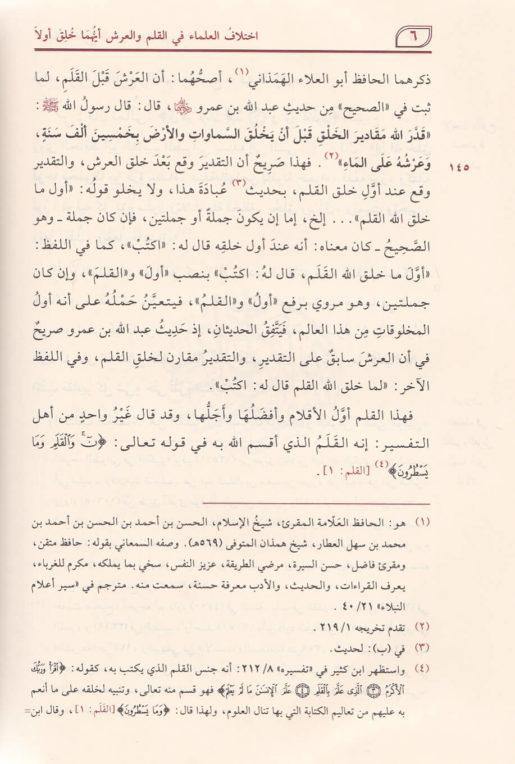 ٦
اختلافُ العلماء في القلم والعرش أيُّهُمَا خُلِقَ أولاً
ذكرهما الحافظ أبو العلاء الهَمَذاني(١)، أصحُّهُما: أن العَرْشَ قَبْلَ القَلَمِ، لما
ثبت في «الصحيح» مِن حديثِ عبد الله بن عمرو رضي الله عنهما، قال: قال رسولُ الله ﷺ:
«قَدَّرَ اللهُ مَقَاديرَ الخَلْقِ قَبْلَ أنْ يَخْلُقَ السَّماواتِ والأرْضَ بِخَمْسينَ ألْفَ سَنَةٍ،
وَعَرْشُهُ عَلَى المَاءِ»(٢). فهذا صَرِيحٌ أن التقديرَ وقع بَعْدَ خلق العرش، والتقدير
١٤٥
وقع عند أوَّلِ خلق القلم، بحديث(٣) عُبادَةَ هذا، ولا يخلو قولُه: «أول ما
خلق الله القلم»... إلخ، إما إن يكونَ جملةً أو جملتين، فإن كان جملة ـ وهو
الصَّحيحُ ـ كان معناه: أنه عندَ أول خلقِه قال له: «اكتُبْ»، كما في اللفظ:
«أوَّلَ ما خلق الله القَلَم، قال لهُ: اكتُبْ» بنصب «أولَ» و«القلمَ»، وإن كان
جملتين، وهو مروي برفع «أولُ» و«القلمُ»، فيتعيَّنُ حَمْلُهُ على أنه أولُ
المخلوقاتِ مِن هذا العالم، فَيَتَّفِقُ الحديثانِ، إذ حَدِيثُ عبد الله بن عمرو صريحٌ
في أن العرشَ سابقٌ على التقديرِ، والتقديرُ مقارن لخلقِ القلم، وفي اللفظ
الآخر: «لما خلق الله القلم قال له: اكتُبْ».
فهذا القلم أوَّلُ الأقلام وأفضَلُهَا وأجَلُّها، وقد قال غَيْرُ واحدٍ من أهل
التفسير: إنه القَلَمُ الذي أقسم الله به في قوله تعالى: ﴿نٓ وَٱلْقَلَمِ وَمَا
يَسْطُرُونَ﴾(٤) [القلم: ١].
(١) هو: الحافظ العَلّامة المقرئ، شيخُ الإسلام، الحسن بن أحمد بن الحسن بن أحمد بن
محمد بن سهل العطار، شيخ همذان المتوفى (٥٦٩هـ). وصفه السمعاني بقوله: حافظ متقن،
ومقرئ فاضل، حسن السيرة، مرضي الطريقة، عزيز النفس، سخي بما يملكه، مكرم للغرباء،
يعرف القراءات، والحديث، والأدب معرفة حسنة، سمعت منه. مترجم في «سير أعلام
النبلاء» ٤٠/٢١.
(٢) تقدم تخريجه ٢١٩/١.
(٣) في (ب): لحديث.
(٤) واستظهر ابن كثير في «تفسيره» ٢١٢/٨: أنه جنس القلم الذي يكتب به، كقوله: ﴿ٱقْرَأْ وَرَبُّكَ
ٱلْأَكْرَمُ ۝٣ ٱلَّذِى عَلَّمَ بِٱلْقَلَمِ ۝٤ عَلَّمَ ٱلْإِنسَٰنَ مَا لَمْ يَعْلَمْ﴾ فهو قسم منه تعالى، وتنبيه لخلقه على ما أنعم
به عليهم من تعاليم الكتابة التي بها تنال العلوم، ولهذا قال: ﴿وَمَا يَسْطُرُونَ﴾ [القَلَم: ١]، وقال ابن=